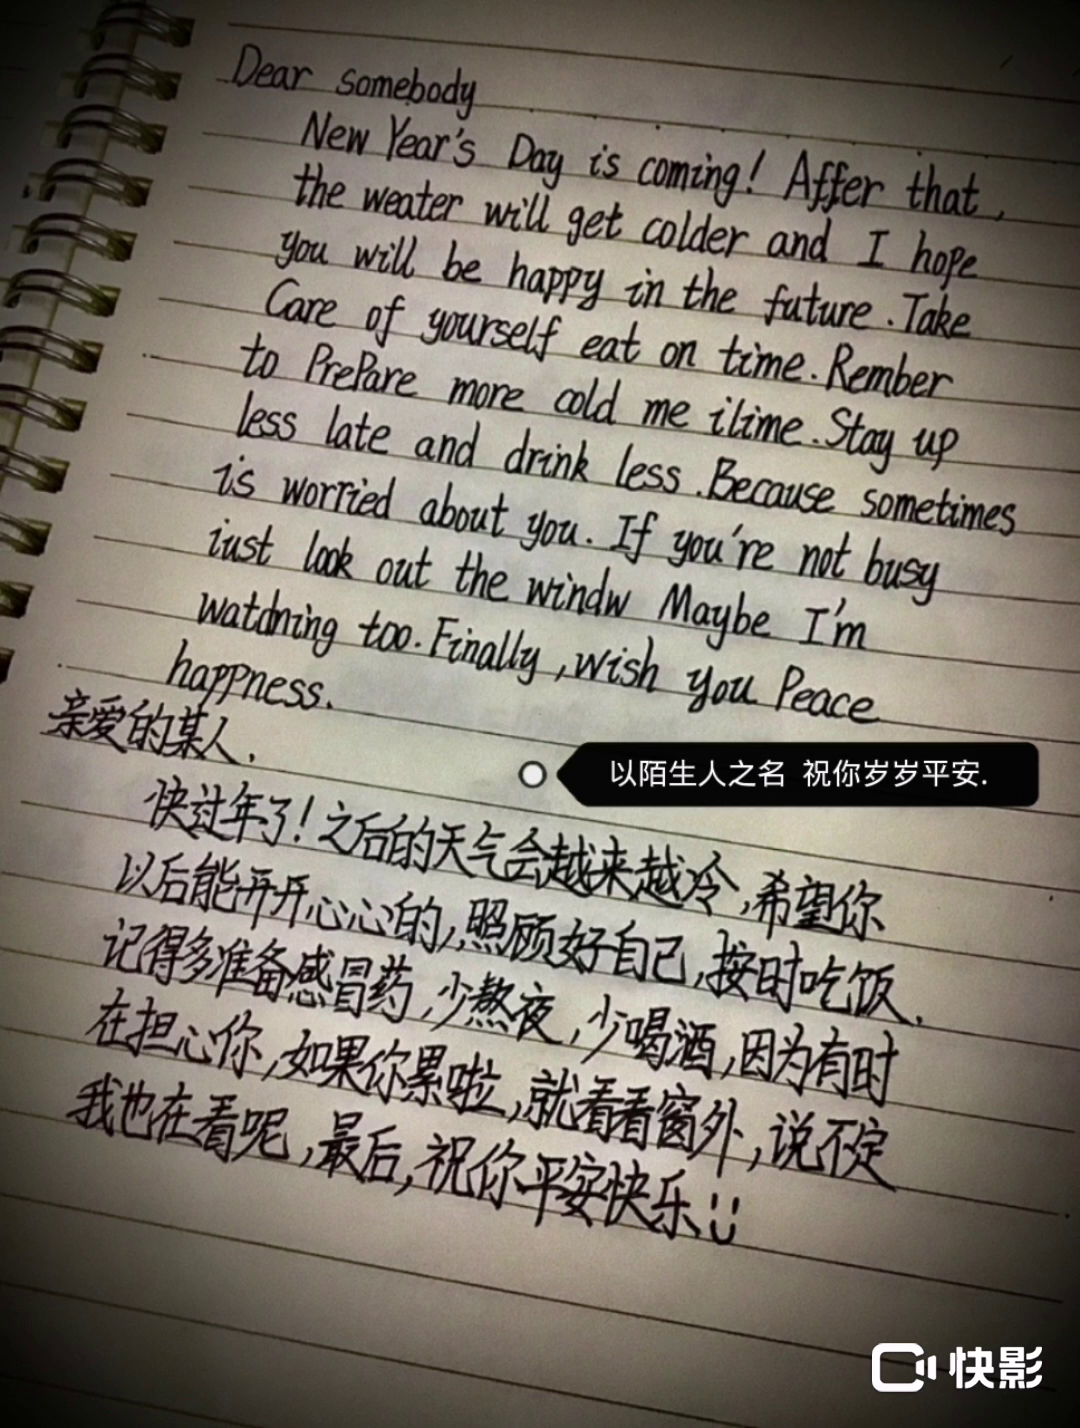 Dear somebody
New Year's Day is coming! Affer that,
the weater will get colder and I hope
you will be happy in the future. Take
Care of yourself eat on time. Rember
to PrePare more cold me ilime. Stay up
less late and drink less. Because sometimes
is worried about you. If you're not busy
iust look out the windw Maybe I'm
watdning too. Finally, wish you Peace
happness.
亲爱的某人.
以陌生人之名 祝你岁岁平安.
快过年了!之后的天气会越来越冷,希望你
以后能开开心心的,照顾好自己,按时吃饭.
记得多准备感冒药,少熬夜,少喝酒,因为有时
在担心你,如果你累啦,就看看窗外,说不定
我也在看呢,最后,祝你平安快乐
快影